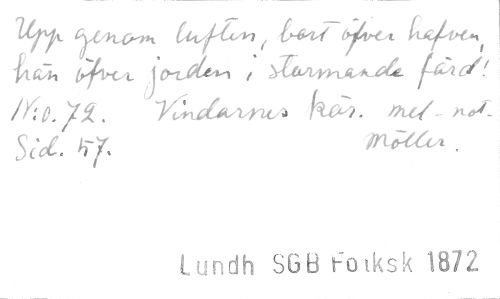 Upp genom luften, bort öfver hafven,
hän öfver jorden i stormande färd!
N:o. 72. Vindarnes kör. mel-not-
Sid. 57. Möller.
Lundh SGB Folksk 1872